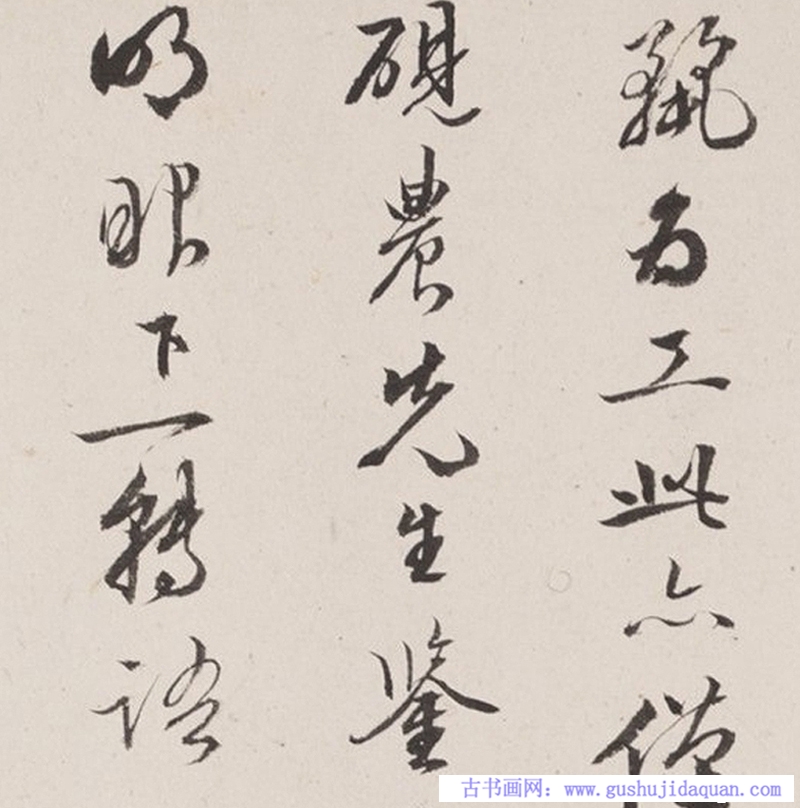 為工此亦僧
硯農先生鑒
明眼下一轉語
古书画网：www.gushujidaquan.com